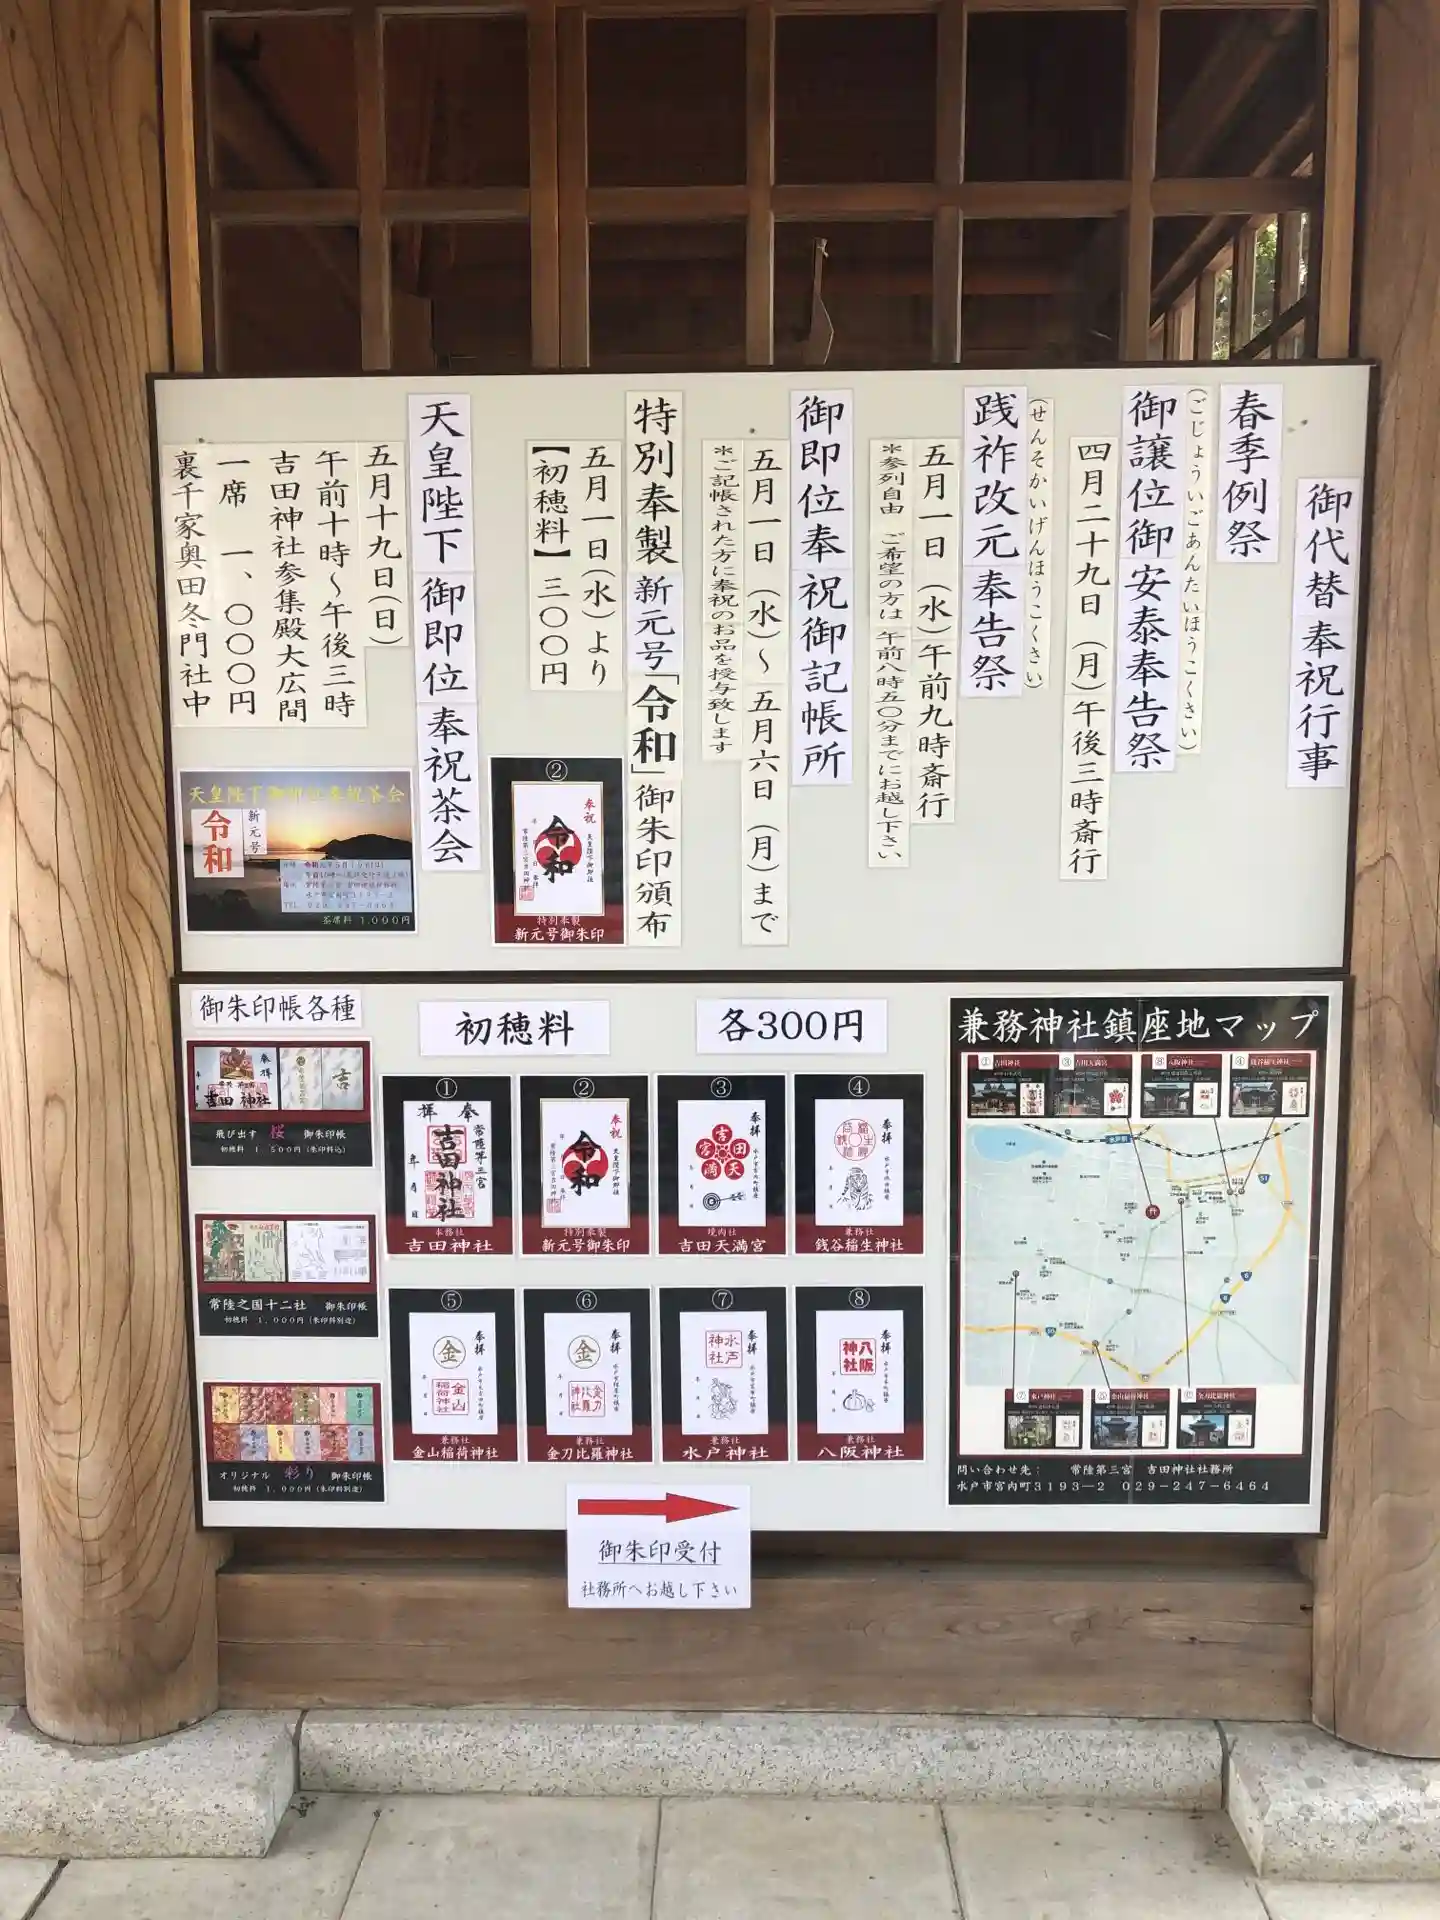 御代替 奉祝行事
春季例祭
(ごじょういごあんたいほうこくさい)
御譲位御安泰奉告祭
四月二十九日(月)午後三時斎行
(せんそかいげんほうこくさい)
践祚改元奉告祭
五月一日(水)午前九時斎行
＊参列自由 ご希望の方は 午前八時五〇分までにお越し下さい
御即位奉祝御記帳所
五月一日(水)～五月六日(月)まで
＊ご記帳された方に奉祝のお品を授与致します
特別奉製 新元号「令和」御朱印頒布
五月一日(水)より
【初穂料】三〇〇円
②
奉祝
令和
特別奉製
新元号御朱印
天皇陛下 御即位 奉祝茶会
五月十九日(日)
午前十時～午後三時
吉田神社参集殿大広間
一席 一、〇〇〇円
裏千家奥田冬門社中
新元号
令和
茶席料 1,000円
御朱印帳各種
奉拝
吉田神社
飛び出す 桜 御朱印帳
常陸之国十二社 御朱印帳
初穂料 1,000円(朱印料別途)
オリジナル 彩り 御朱印帳
初穂料 1,000円(朱印料別途)
初穂料
各300円
①
奉拝
常陸第三宮
吉田神社
年 月 日
本務社
吉田神社
②
奉祝
令和
特別奉製
新元号御朱印
③
奉拝
吉田天満宮
境内社
吉田天満宮
④
奉拝
兼務社
銭谷稲生神社
⑤
奉拝
金
金山稲荷神社
兼務社
金山稲荷神社
⑥
奉拝
金
兼務社
金刀比羅神社
⑦
奉拝
水戸神社
兼務社
水戸神社
⑧
奉拝
八阪神社
兼務社
八阪神社
兼務神社鎮座地マップ
①吉田神社
③吉田天満宮
⑧八阪神社
④銭谷稲生神社
⑦水戸神社
⑤金山稲荷神社
⑥金刀比羅神社
問い合わせ先： 常陸第三宮 吉田神社社務所
水戸市宮内町3193－2 029－247－6464
御朱印受付
社務所へお越し下さい